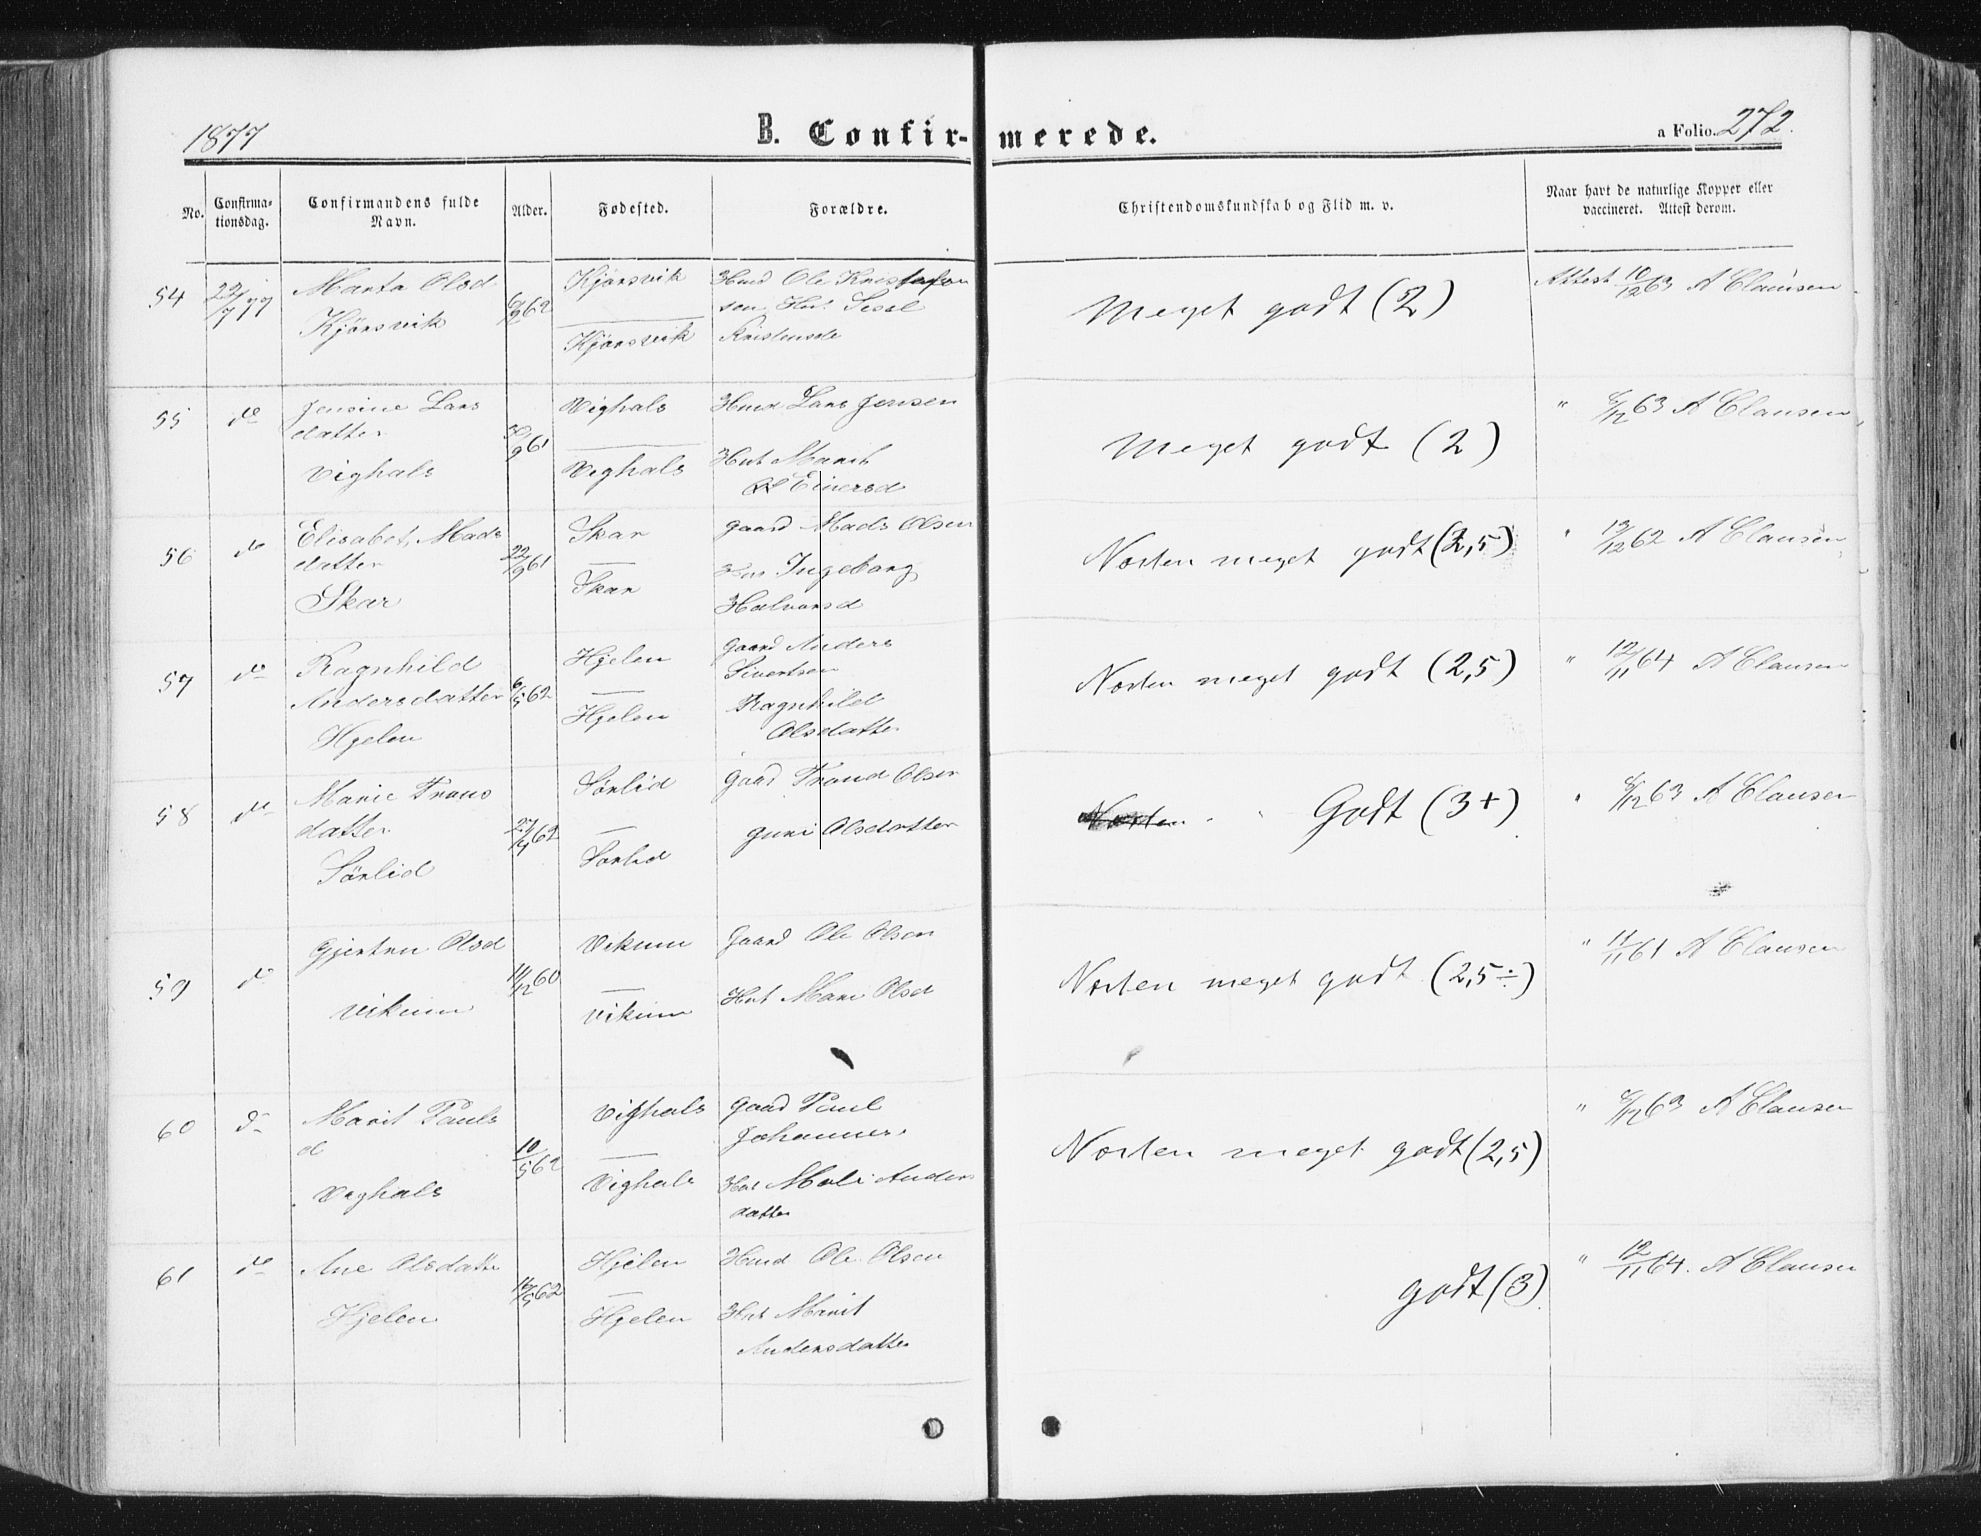 1877
B. Confir-merede.
a Folio. 272.
No.
Confirma-
tionsdag.
Confirmandens fulde
Navn.
Alder.
Fødested.
Forældre.
Christendomskundskab og Flid m. v.
Naar havt de naturlige Kopper eller
vaccineret. Attest derom.
54 22/7 77 Marta Olsd
Kjørsvik
6/9 62
Kjørsvik
Kjørsvik
Hmd Ole Kristofer
sen Hut Sissl
Kristensd
Meget godt (2)
Attest 10/12 63 A Clausen
55 do Jensine Lars
datter
Vighals
9 61
Vighals
Vighals
Hmd Lars Jensen
Hut Marit
Einersd
Meget godt (2)
" 6/12 63 A Clausen
56 do Elisabet Mads
datter
Skar
22/9 61
Skar
Skar
gaard Mads Olsen
Hut Ingeborg
Halvorsd
Næsten meget godt (2,5)
" 12/12 62 A Clausen
57 do Ragnhild
Andersdatter
Hjelen
6/5 62
Hjelen
Hjelen
gaard Anders
Sivertsen
Ragnhild
Olsdatter
Næsten meget godt (2,5)
" 12/11 64 A Clausen
58 do Marie Trons
datter
Sørlid
27/4 62
Sørlid
Sørlid
gaad Trond Olsen
guri Olsdatter
Næsten Godt (3+)
" 6/12 63 A Clausen
59 do Gjertru Olsd
Vikum
11/12 60
Vikum
Vikum
Gaard Ole Olsen
Hut Mari Olsd
Næsten meget godt (2,5÷)
" 11/11 61 A Clausen
60 do Marit Pauls
d
Veghals
10/5 62
Vighals
Vighals
gaad Paul
Johannes
Hut Mali Anders
datter
Næsten meget godt (2,5)
" 6/12 63 A Clausen
61 do Ane Olsdatte
Hjelen
16/5 62
Hjelen
Hjelen
Hmd Ole Olsen
Hut Marit
Andersdatter
godt (3)
" 12/11 64. A Clausen